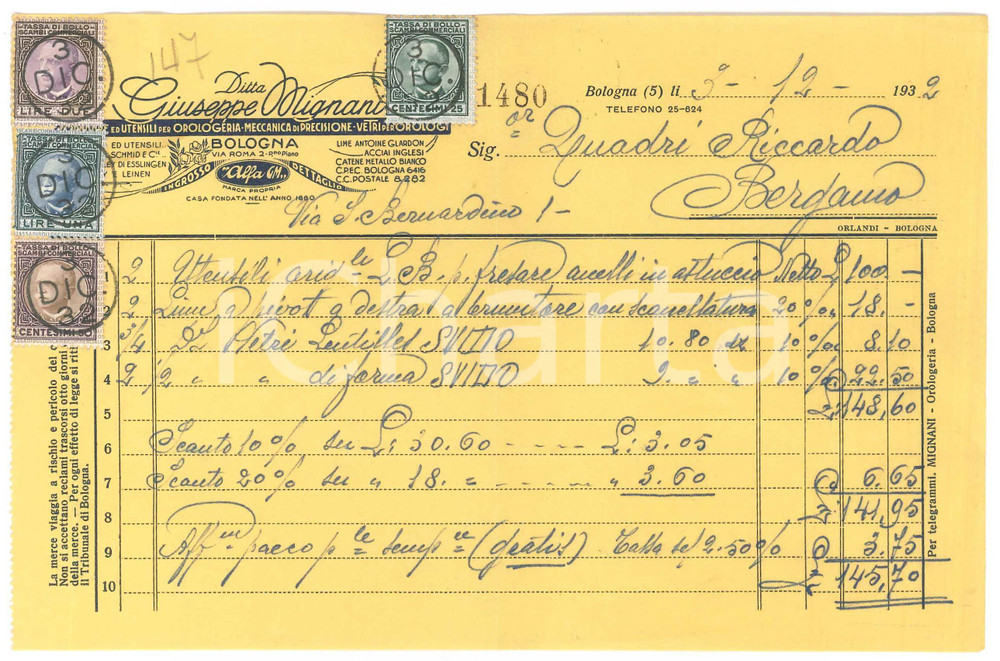 TASSA DI BOLLO
SCAMBI COMMERCIALI
3
DIC.
LIRE DUE
TASSA DI BOLLO
SCAMBI COMMERCIALI
3
DIC.
LIRE UNA
TASSA DI BOLLO
SCAMBI COMMERCIALI
3
DIC.
CENTESIMI 50
TASSA DI BOLLO
SCAMBI COMMERCIALI
3
DIC.
CENTESIMI 25
147
Ditta
Giuseppe Mignani
ED UTENSILI PER OROLOGERIA-MECCANICA DI PRECISIONE-VETRI PER OROLOGI
ED UTENSILI
SCHMID E C.
EY DI ESSLINGEN
LEINEN
BOLOGNA
VIA ROMA 2-PMO PIANO
INGROSSO "Alfa M." DETTAGLIO
MARCA PROPRIA
CASA FONDATA NELL'ANNO 1880
LIME ANTOINE GLARDON
ACCIAI INGLESI
CATENE METALLO BIANCO
C.P.E.C. BOLOGNA 6416
C.C. POSTALE 8282
1480
Bologna (5) li 3 - 12 - 1932
TELEFONO 25-624
Sig. Quadri Riccardo
Bergamo
Via S. Bernardino 1 -
ORLANDI - BOLOGNA
2 Utensili L. B. p. fresare anelli in astuccio Netto £ 100. -
2 Lime a pivot a destra a brunitore con scanellatura 20% " 18. -
3 3/4 Dz Vetri Lentilles SVIZZO 10.80 dz 10% " 8.10
4 2 1/2 " " di forma SVIZZO 9. " " 10% " 22.50
5 £ 148,60
6 Sconto 10% su £: 30.60 - - - - £: 3.05
7 Sconto 20% su " 18. = - - - - - " 3.60 " 6.65
8 £ 141,95
9 pacco (gratis) Tassa 2.50% " 3.75
10 £ 145,70
La merce viaggia a rischio e pericolo del c
Non si accettano reclami trascorsi otto giorni
della merce. — Per ogni effetto di legge si riti
il Tribunale di Bologna.
Per telegrammi. MIGNANI - Orologeria - Bologna
iCharta